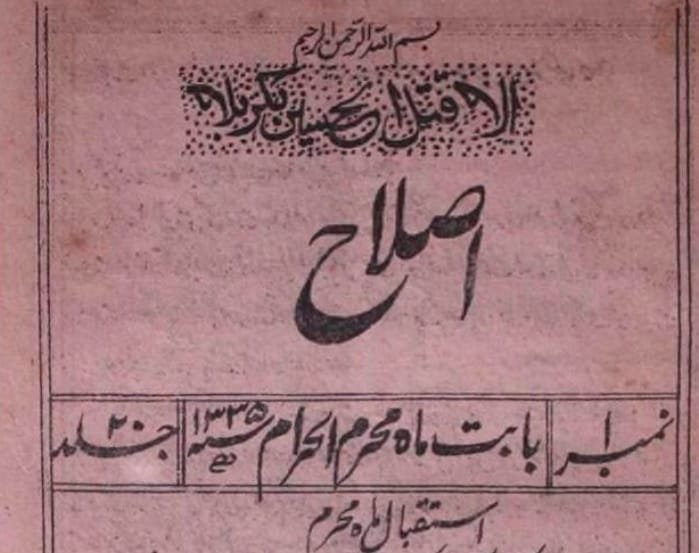 بسم اللہ الرحمن الرحیم
الا قتل الحسین بکربلا
اصلاح
نمبر ۱ بابت ماہ محرم الحرام سنہ ۱۳۳۵ ھ جلد ۲۰
استقبال ماہ محرم